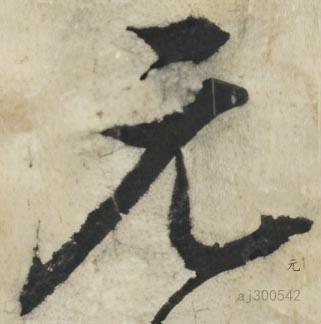 元
元
aj300542